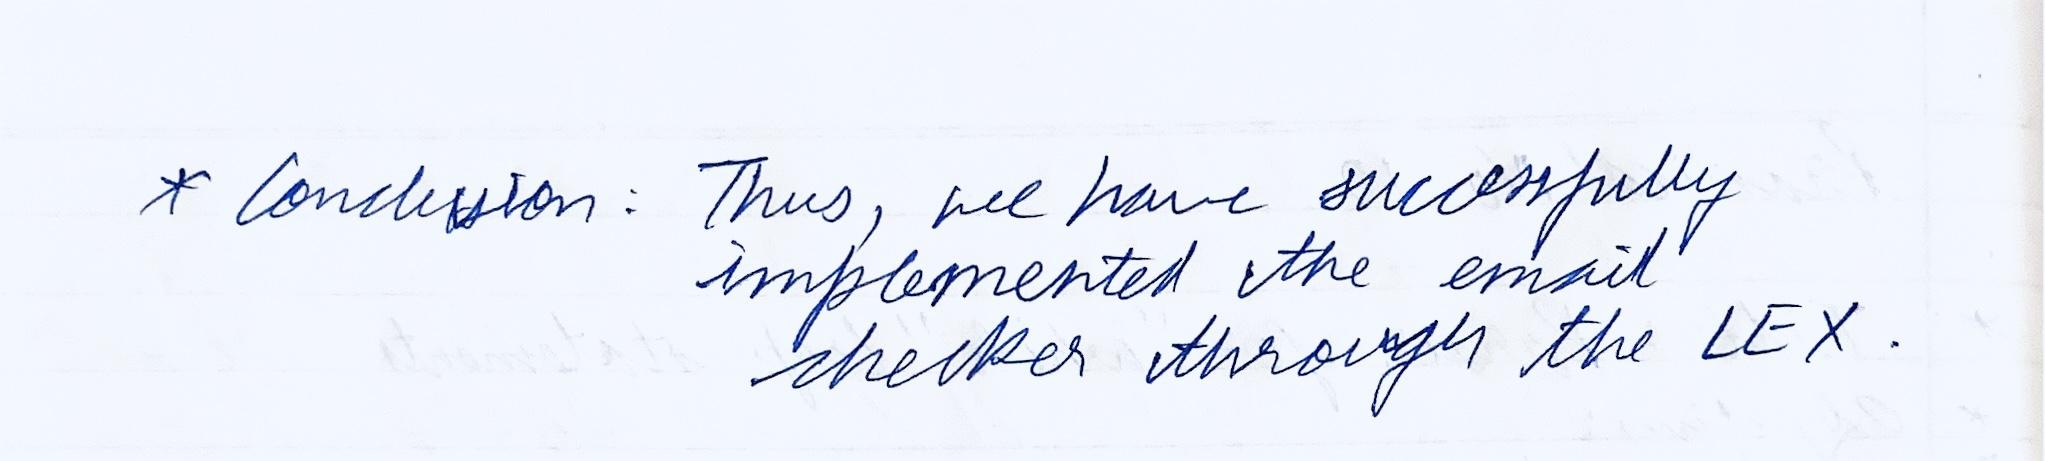 * Conclusion: Thus, we have successfully
implemented the email
checker through the LEX.